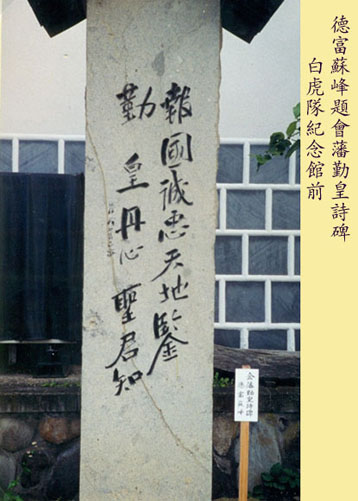 德富蘇峰題會藩勤皇詩碑
白虎隊紀念館前
報國誠忠天地鑒
勤皇丹心聖君知